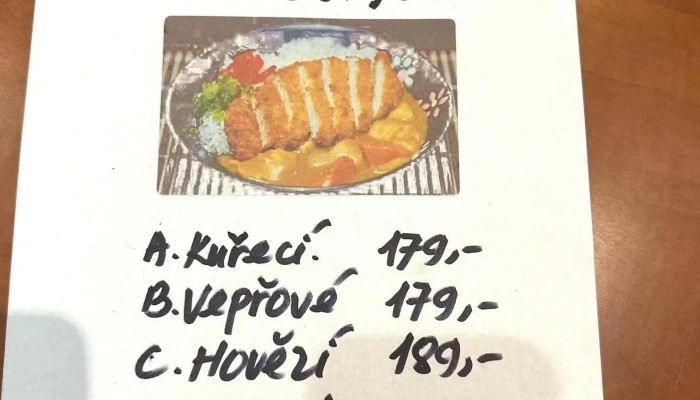 A. Kuřecí. 179,-
B. Vepřové 179,-
C. Hovězí 189,-